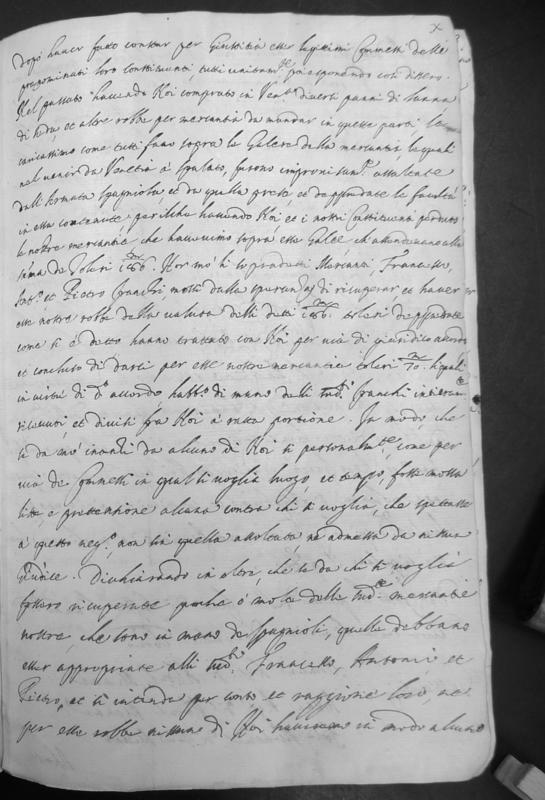 x
dopò haver fatto constar per Giustitia esser legittimi Commessi delli
prenominati loro constituenti, tutti unitam.te così dissero.
Nel passato havendo Noi comprato in Ven.a diversi panni di lanna
di seda, et altre robbe per mercantia da mandar in queste parti, le
caricassimo come tutti fano sopra la Galera della mercantia, la quali
nel venir da Venetia à Spalato, furono assaltate
dall'Armata Spagniola, et da quella prese, et depredate le facultà
in essa contenute, per il che havendo Noi et i nostri Constituenti perduto
le nostre mercantie, che havevimo soprà esse Galee che ascendevano alla
suma de Toleri 186. Hor mò li sopradetti Marcanzi, Francesco,
Ant.o et Pietro Franchi, mossi dalla speranza di ricuperar et haver
esse nostre robbe della valuta delli detti 186. toleri depredate
come si è detto hanno trattato con Noi per via di accordo
et concluso di darci per esse nostre mercantie toleri 70. li quali
in virtù di d.o accordo habb.o di mano delli sud.ti Franchi
ricevuti, et divisi frà Noi à ratta portione. In modo, che
se da mò inanzi da alcuno di Noi si personalm.te, come per
via de Commessi in qual si voglia luogo et tempo, fosse mossa
litte ò prettensione alcuna contra chi si voglia, che spettasse
à questo neg.o, non sia quella ascoltata, nè admessa da nissun
Giudice. Dichiarando in oltre, che se da chi si voglia
fossero ricuperate poche ò molte delle sud.te mercantie
nostre, che sono in mano de Spagnioli, quelle debbano
esser appropriate alli sud.ti Francesco, Antonio, et
Pietro, et si intenda per conto, et raggione loro, ne
per esse robbe nissuno di Noi in modo alcuno